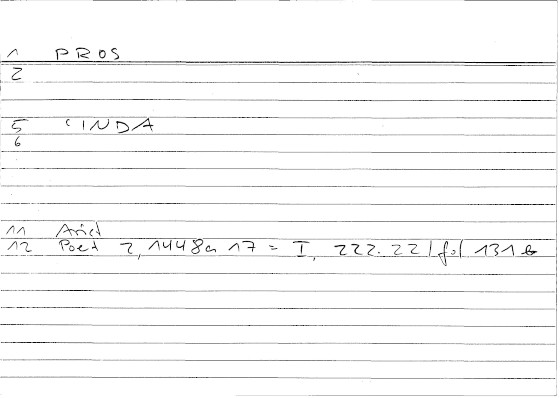 1 PROS
2
5 ʿINDA
6
11 Arist
12 Poet 2, 1448a 17 = I, 222.22 / fol 131 b